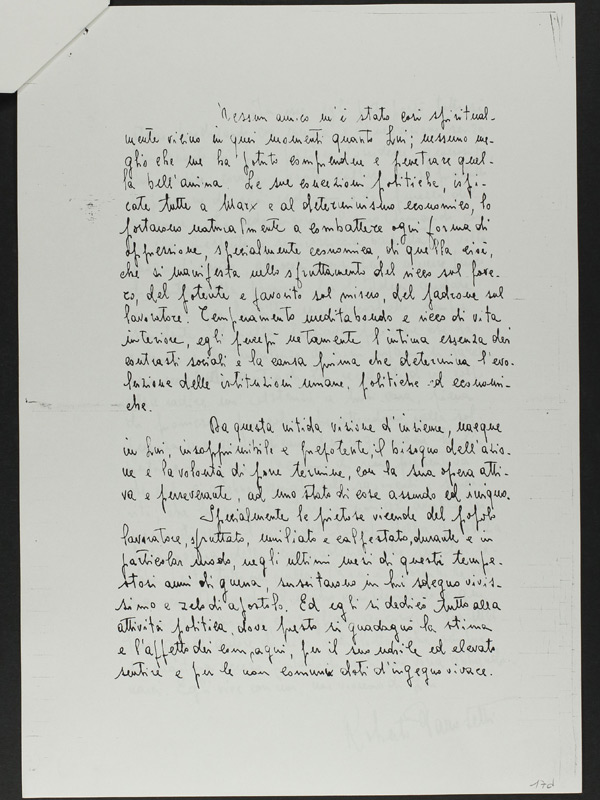 Nessun amico m'è stato così spiritual-
mente vicino in quei momenti quanto Lui; nessuno me-
glio che me ha potuto comprendere e penetrare quel-
la bell'anima. Le sue concezioni politiche, ispi-
cate tutte a Marx e al determinismo economico, lo
portarono naturalmente a combattere ogni forma di
oppressione, specialmente economica, di quella cioè,
che si manifesta nello sfruttamento del ricco sul pove-
ro, del potente e favorito sul misero, del padrone sul
lavoratore. Temperamento meditabondo e ricco di vita
interiore, egli percepì nettamente l'intima essenza dei
contrasti sociali e la causa prima che determina l'evo-
luzione delle istituzioni umane, politiche ed economi-
che.
Da questa nitida visione d'insieme, nacque
in Lui, insopprimibile e prepotente, il bisogno dell'azio-
ne e la volontà di porre termine, con la sua opera atti-
va e perseverante, ad uno stato di cose assurdo ed iniquo.
Specialmente le pietose vicende del popolo
lavoratore, sfruttato, umiliato e calpestato, durante e in
particolar modo, negli ultimi mesi di questi tempe-
stosi anni di guerra, suscitarono in lui sdegno vivis-
simo e zelo di apostolo. Ed egli si dedicò tutto alla
attività politica, dove presto si guadagnò la stima
e l'affetto dei compagni, per il suo nobile ed elevato
sentire e per le non comuni doti d'ingegno vivace.
17d